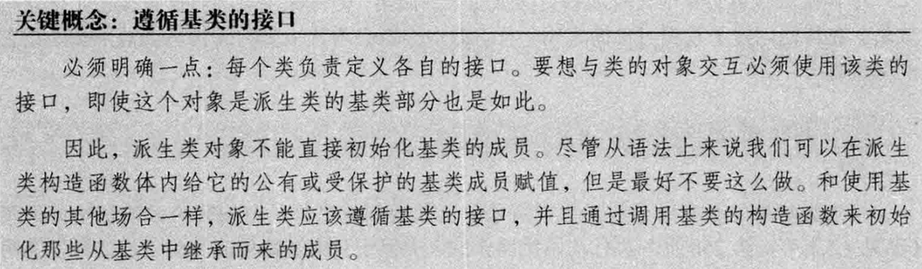 关键概念：遵循基类的接口
必须明确一点：每个类负责定义各自的接口。要想与类的对象交互必须使用该类的
接口，即使这个对象是派生类的基类部分也是如此。
因此，派生类对象不能直接初始化基类的成员。尽管从语法上来说我们可以在派生
类构造函数体内给它的公有或受保护的基类成员赋值，但是最好不要这么做。和使用基
类的其他场合一样，派生类应该遵循基类的接口，并且通过调用基类的构造函数来初始
化那些从基类中继承而来的成员。